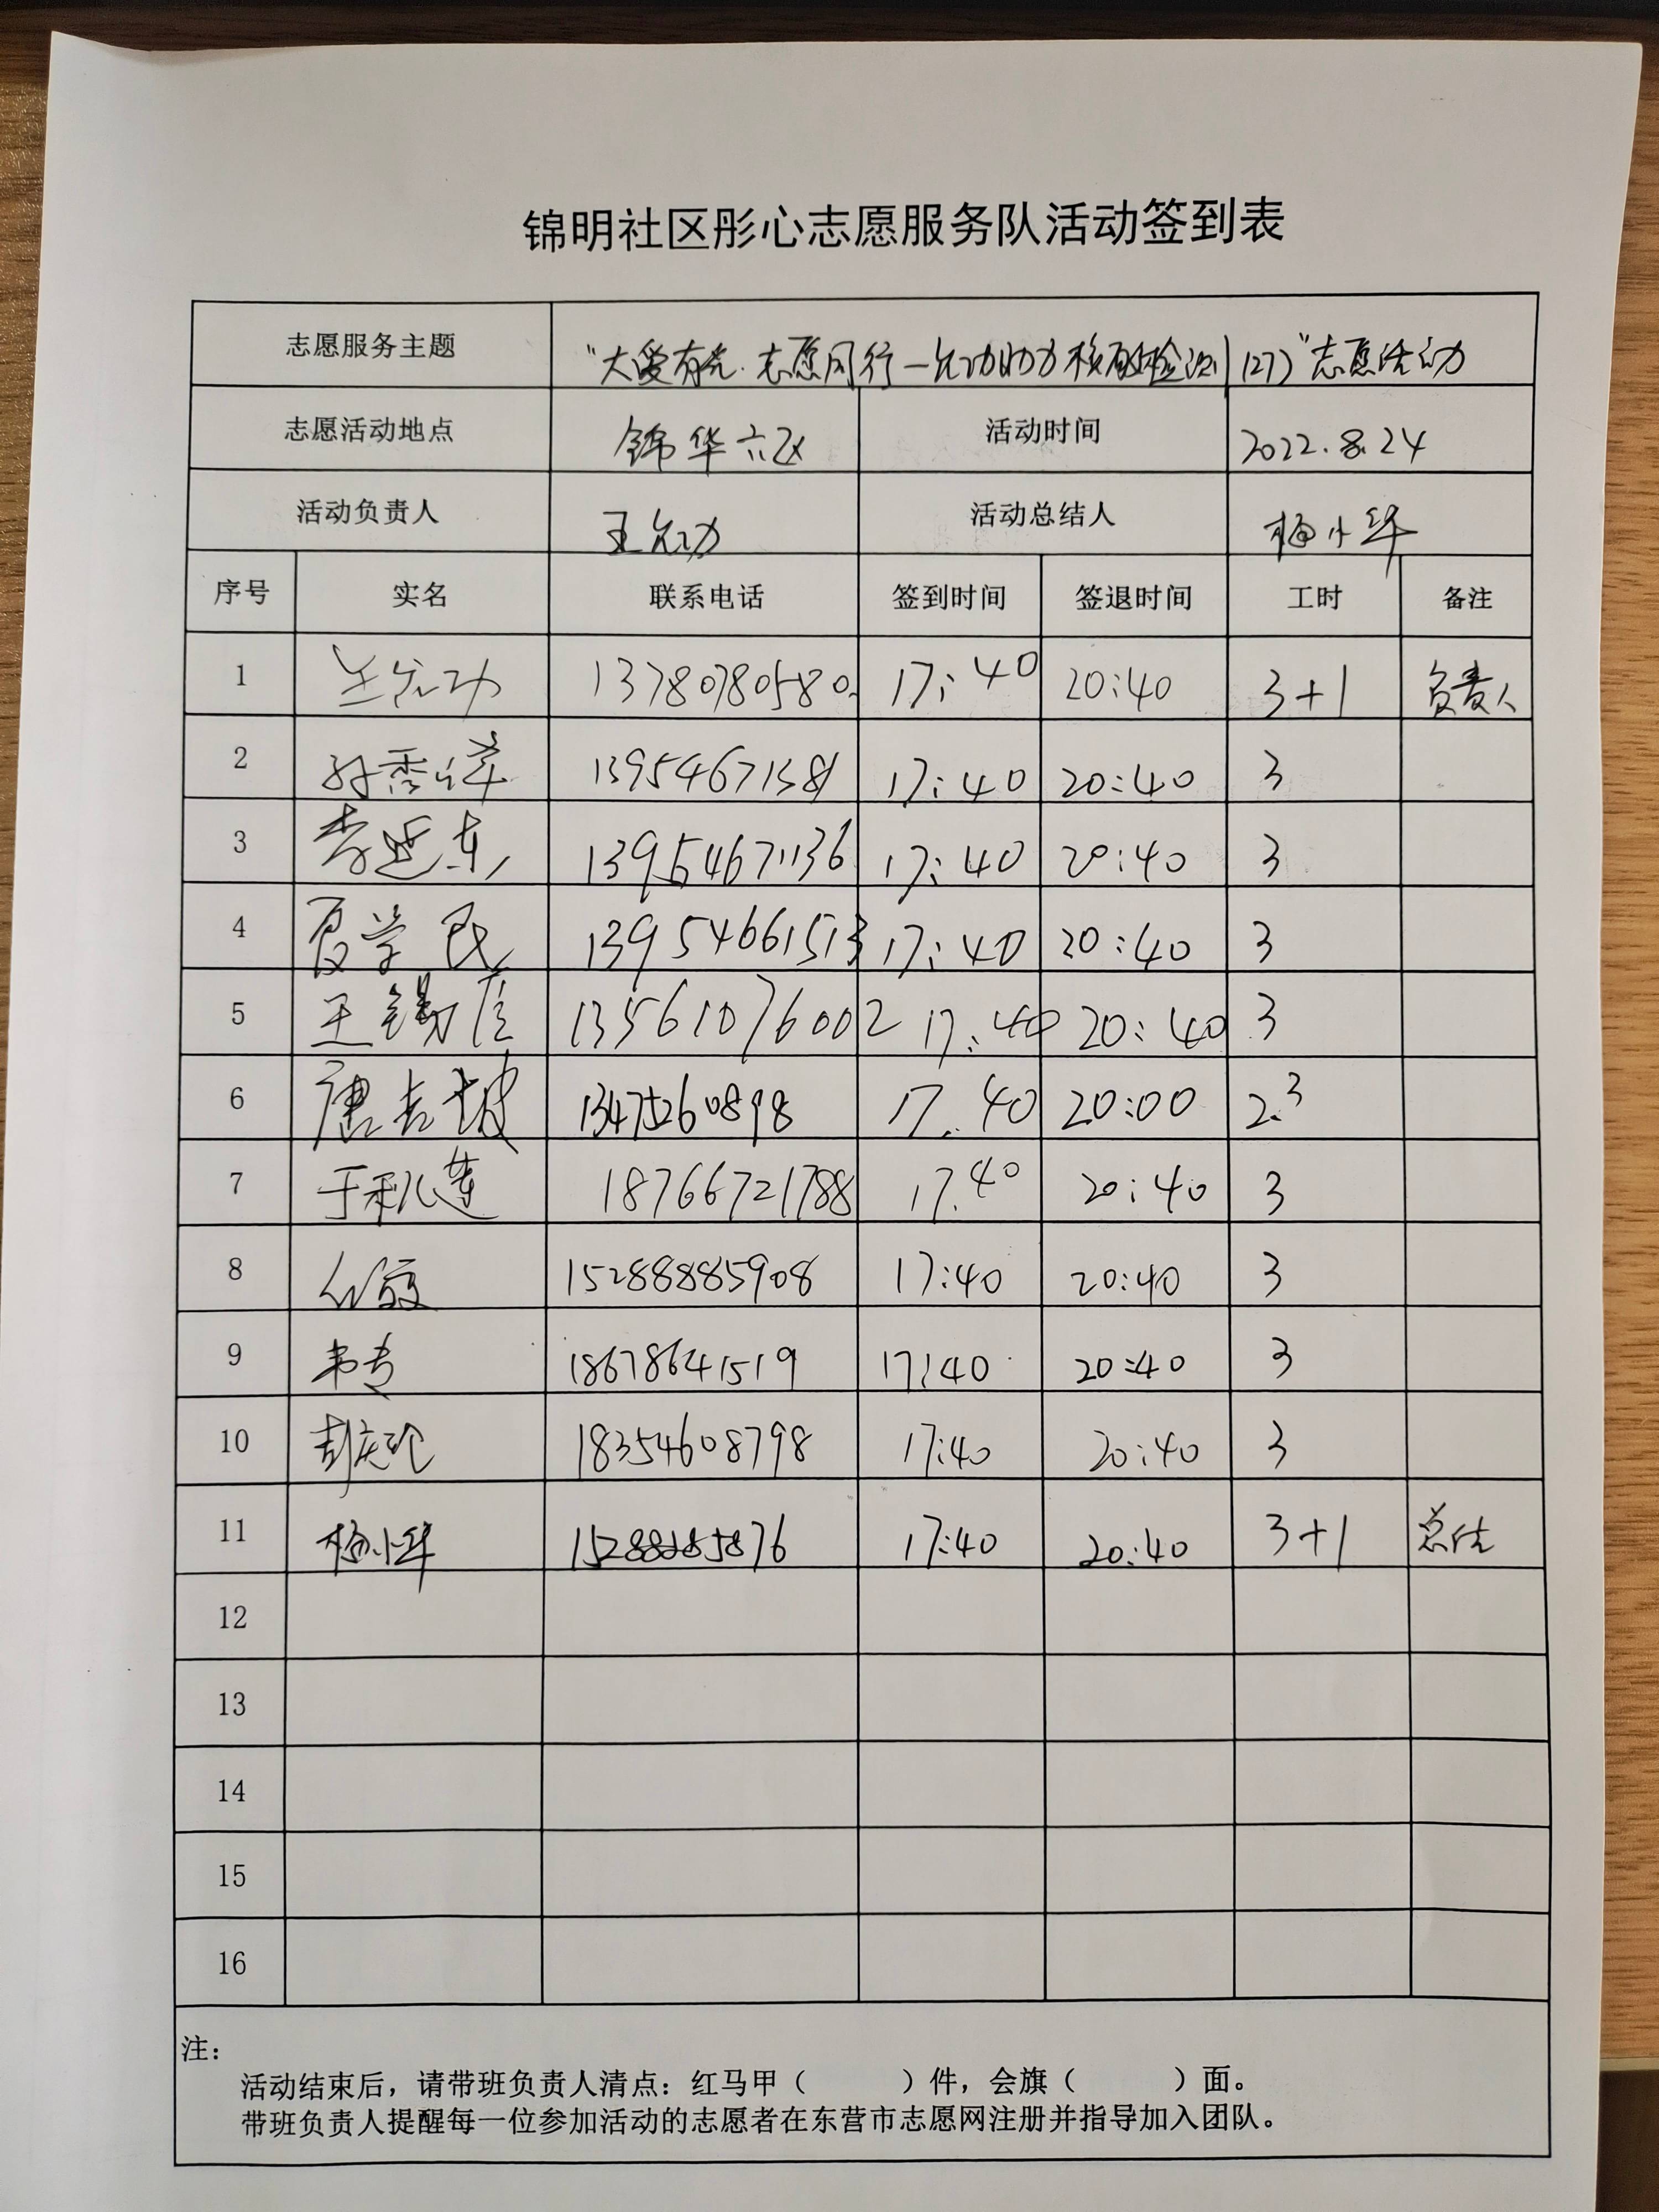 锦明社区彤心志愿服务队活动签到表
志愿服务主题 "大爱有光·志愿同行—允功助力核酸检测(27)"志愿活动
志愿活动地点 锦华六区 活动时间 2022.8.24
活动负责人 王允功 活动总结人 梅小华
序号 实名 联系电话 签到时间 签退时间 工时 备注
1 王允功 13780780580 17:40 20:40 3+1 负责人
2 孙秀萍 13954671381 17:40 20:40 3
3 李延东 13954671136 17:40 20:40 3
4 夏学民 13954661513 17:40 20:40 3
5 王锡 13561076002 17:40 20:40 3
6 唐吉坡 13475260898 17.40 20:00 2.3
7 于秋莲 18766721788 17.40 20:40 3
8 15288885908 17:40 20:40 3
9 18678641519 17:40 20:40 3
10 彭庆 18354608798 17:40 20:40 3
11 梅小华 17:40 20:40 3+1 总结
12
13
14
15
16
注:
活动结束后，请带班负责人清点：红马甲（ ）件，会旗（ ）面。
带班负责人提醒每一位参加活动的志愿者在东营市志愿网注册并指导加入团队。